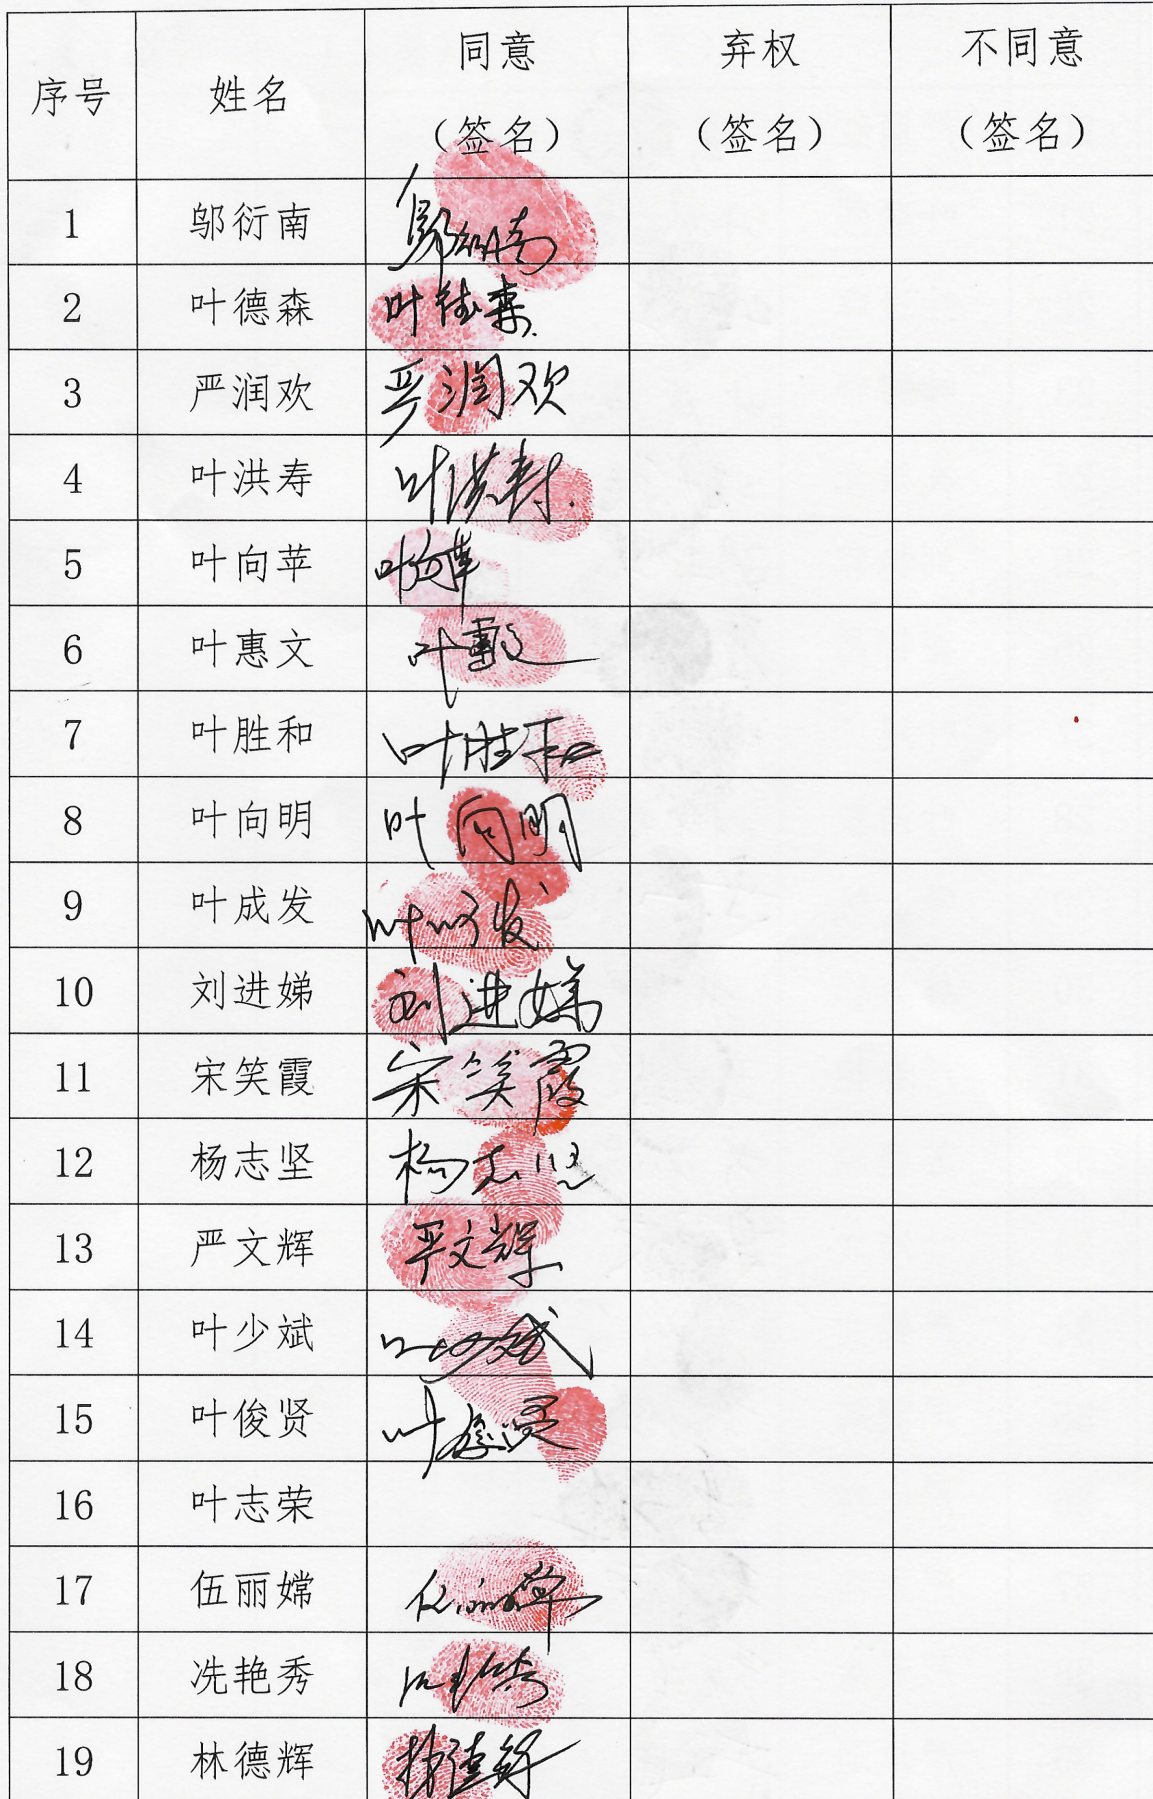 序号 姓名 同意 弃权 不同意
（签名） （签名） （签名）
1 邬衍南 邬衍南
2 叶德森 叶德森
3 严润欢 严润欢
4 叶洪寿 叶洪寿
5 叶向苹 叶向苹
6 叶惠文 叶惠文
7 叶胜和 叶胜和
8 叶向明 叶向明
9 叶成发 叶成发
10 刘进娣 刘进娣
11 宋笑霞 宋笑霞
12 杨志坚 杨志坚
13 严文辉 严文辉
14 叶少斌 叶少斌
15 叶俊贤 叶俊贤
16 叶志荣
17 伍丽嫦
18 冼艳秀
19 林德辉